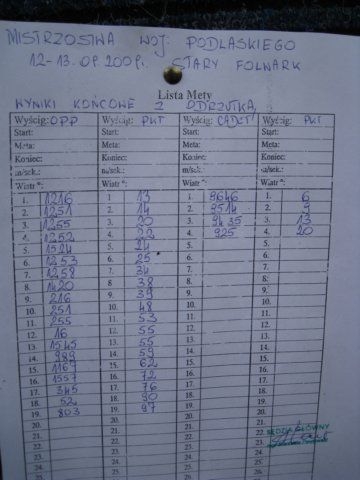 MISTRZOSTWA WOJ: PODLASKIEGO
12-13.09.2009r. STARY FOLWARK
Lista Mety
WYNIKI KOŃCOWE Z ODRZUTKĄ
Wyścig: OPP Wyścig: PKT Wyścig: CADET Wyścig: PKT
Start: Start: Start: Start:
Meta: Meta: Meta: Meta:
Koniec: Koniec: Koniec: Koniec:
m/sek.: m/sek.: m/sek.: m/sek.:
Wiatr °: Wiatr °: Wiatr °: Wiatr °:
1. 1216 1. 13 1. 9646 1. 6
2. 1251 2. 14 2. 9514 2. 9
3. 1255 3. 20 3. 9435 3. 13
4. 1252 4. 22 4. 925 4. 20
5. 1524 5. 24 5. 5.
6. 1253 6. 25 6. 6.
7. 1258 7. 34 7. 7.
8. 1420 8. 38 8. 8.
9. 216 9. 39 9. 9.
10. 251 10. 48 10. 10.
11. 255 11. 53 11. 11.
12. 16 12. 55 12. 12.
13. 1545 13. 55 13. 13.
14. 989 14. 59 14. 14.
15. 1167 15. 62 15. 15.
16. 1557 16. 72 16. 16.
17. 345 17. 76 17. 17.
18. 52 18. 90 18. 18.
19. 803 19. 97 19. 19.
20. 20. 20. 20.
21. 21. 21. 21.
SĘDZIA GŁÓWNY
22. 22. 22. 22.
23. 23. 23. 23.
24. 24. 24. 24.
25. 25. 25.